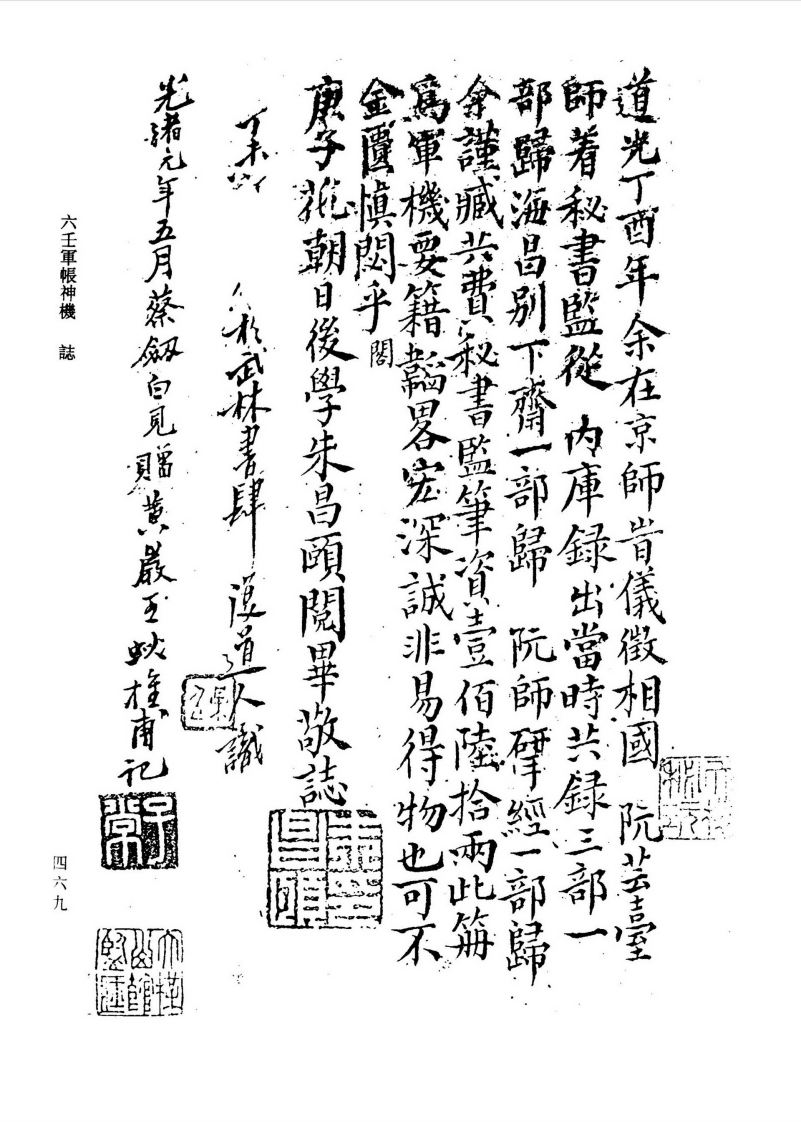 道光丁酉年余在京師肯儀徵相國　阮芸臺
師着秘書監從　內庫録出當時共録三部一
部歸海昌別下齋一部歸　阮師揅經一部歸
余謹臧共費秘書監筆資壹佰陸拾兩此冊
爲軍機要籍韜畧宏深誠非易得物也可不
金匱愼閟乎
閣
庚子花朝日後學朱昌頤閱畢敬誌
朱昌頤
丁未
於武林書肆　道人識
光緒元年五月蔡劔白見贈黃巖王
記
子常
六壬軍帳神機　誌
四六九